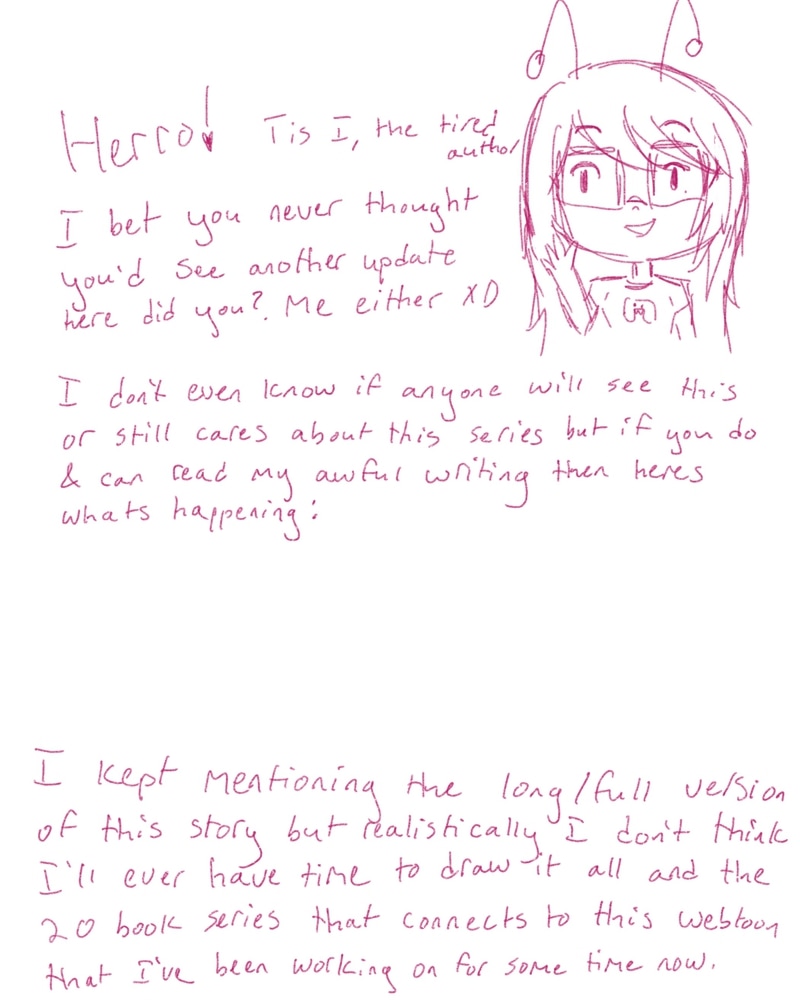 Herro!
Tis I, the tired
author
I bet you never thought
you'd see another update
here did you? Me either XD
I don't even know if anyone will see this
or still cares about this series but if you do
& can read my awful writing then heres
whats happening:
I kept mentioning the long/full version
of this story but realistically I don't think
I'll ever have time to draw it all and the
20 book series that connects to this webtoon
that I've been working on for some time now.